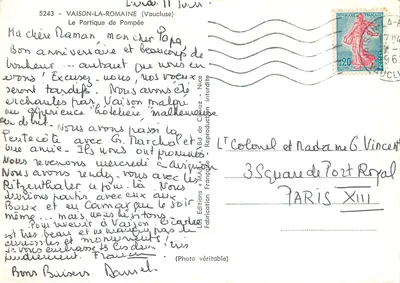 Lundi 11 Juin
5243 - VAISON-LA-ROMAINE (Vaucluse)
Le Portique de Pompée
Ma chère Maman, mon cher Papa,
Bon anniversaire et beaucoup de
bonheur ... autant que nous en
avons! Excusez-nous, nos vœux
seront tardifs. Nous avons été
enchantés par Vaison malgré
une expérience hôtelière malheureuse
au début. Nous avons passé la
Pentecôte avec G. Marchal et
une amie. Ils nous ont
Nous revenons mercredi
Nous avons rendez-vous avec les
Ritzenthaler ce jour-là. Nous
devions partir avec eux aux
Baux et en Camargue le soir
même ... mais nous hésitons.
Pour revenir à Vaison :
est très beau et ne manque pas de
curiosités et monuments!
Je vous embrasse tous deux très
tendrement.
Bons Baisers. Daniel
Les Editions « MAR », 
Fabrication Française - Reproduction interdite
Nice
(Photo véritable)
0,20
Lt Colonel et Madame G. Vincent
3 Square de Port Royal
PARIS XIII